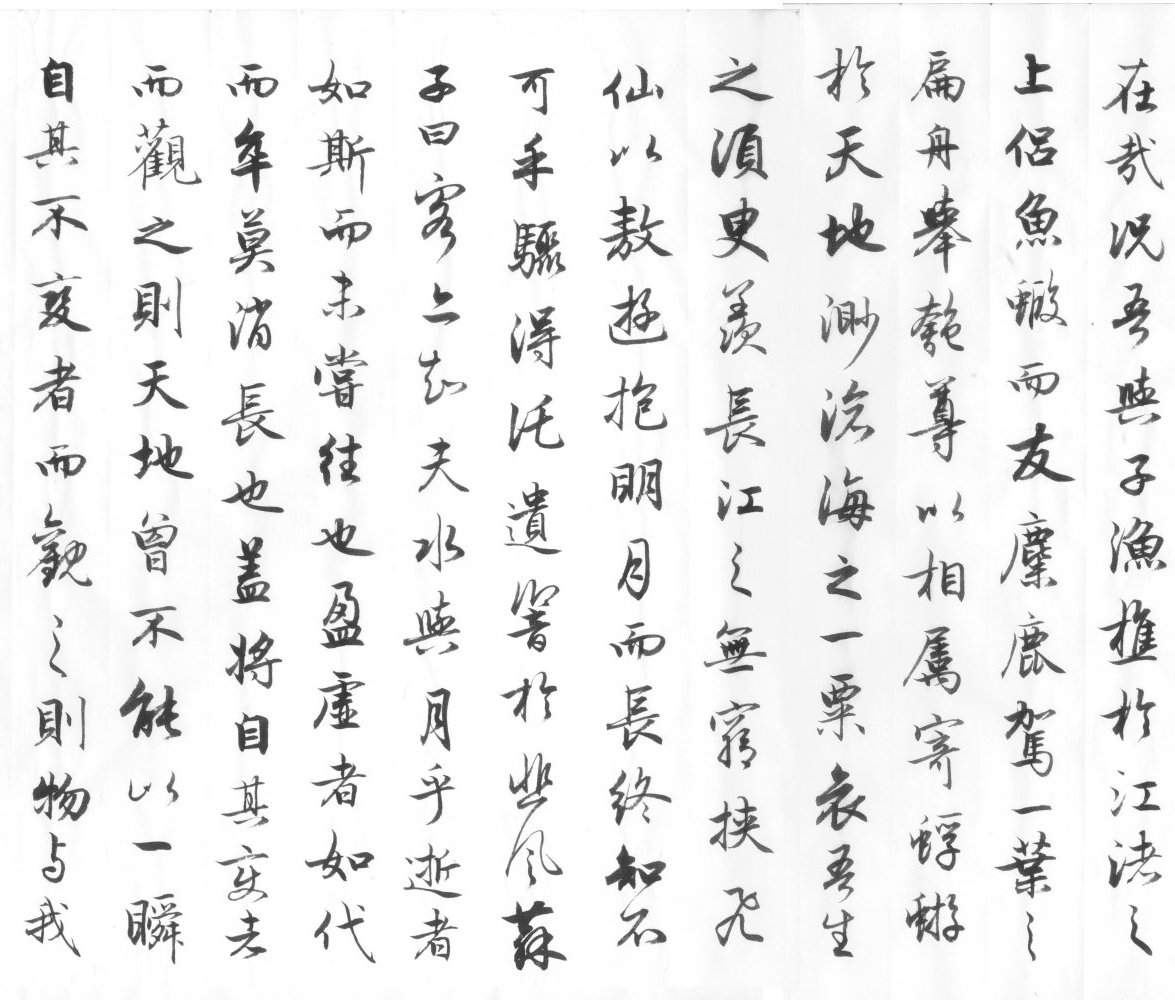 在哉況吾與子漁樵於江渚之
上侶魚蝦而友麋鹿駕一葉之
扁舟舉匏尊以相屬寄蜉蝣
於天地渺滄海之一粟哀吾生
之須臾羨長江之無窮挾飛
仙以敖遊抱明月而長終知不
可乎驟得託遺響於悲風蘇
子曰客亦知夫水與月乎逝者
如斯而未嘗往也盈虛者如代
而卒莫消長也蓋將自其變者
而觀之則天地曾不能以一瞬
自其不變者而觀之則物與我